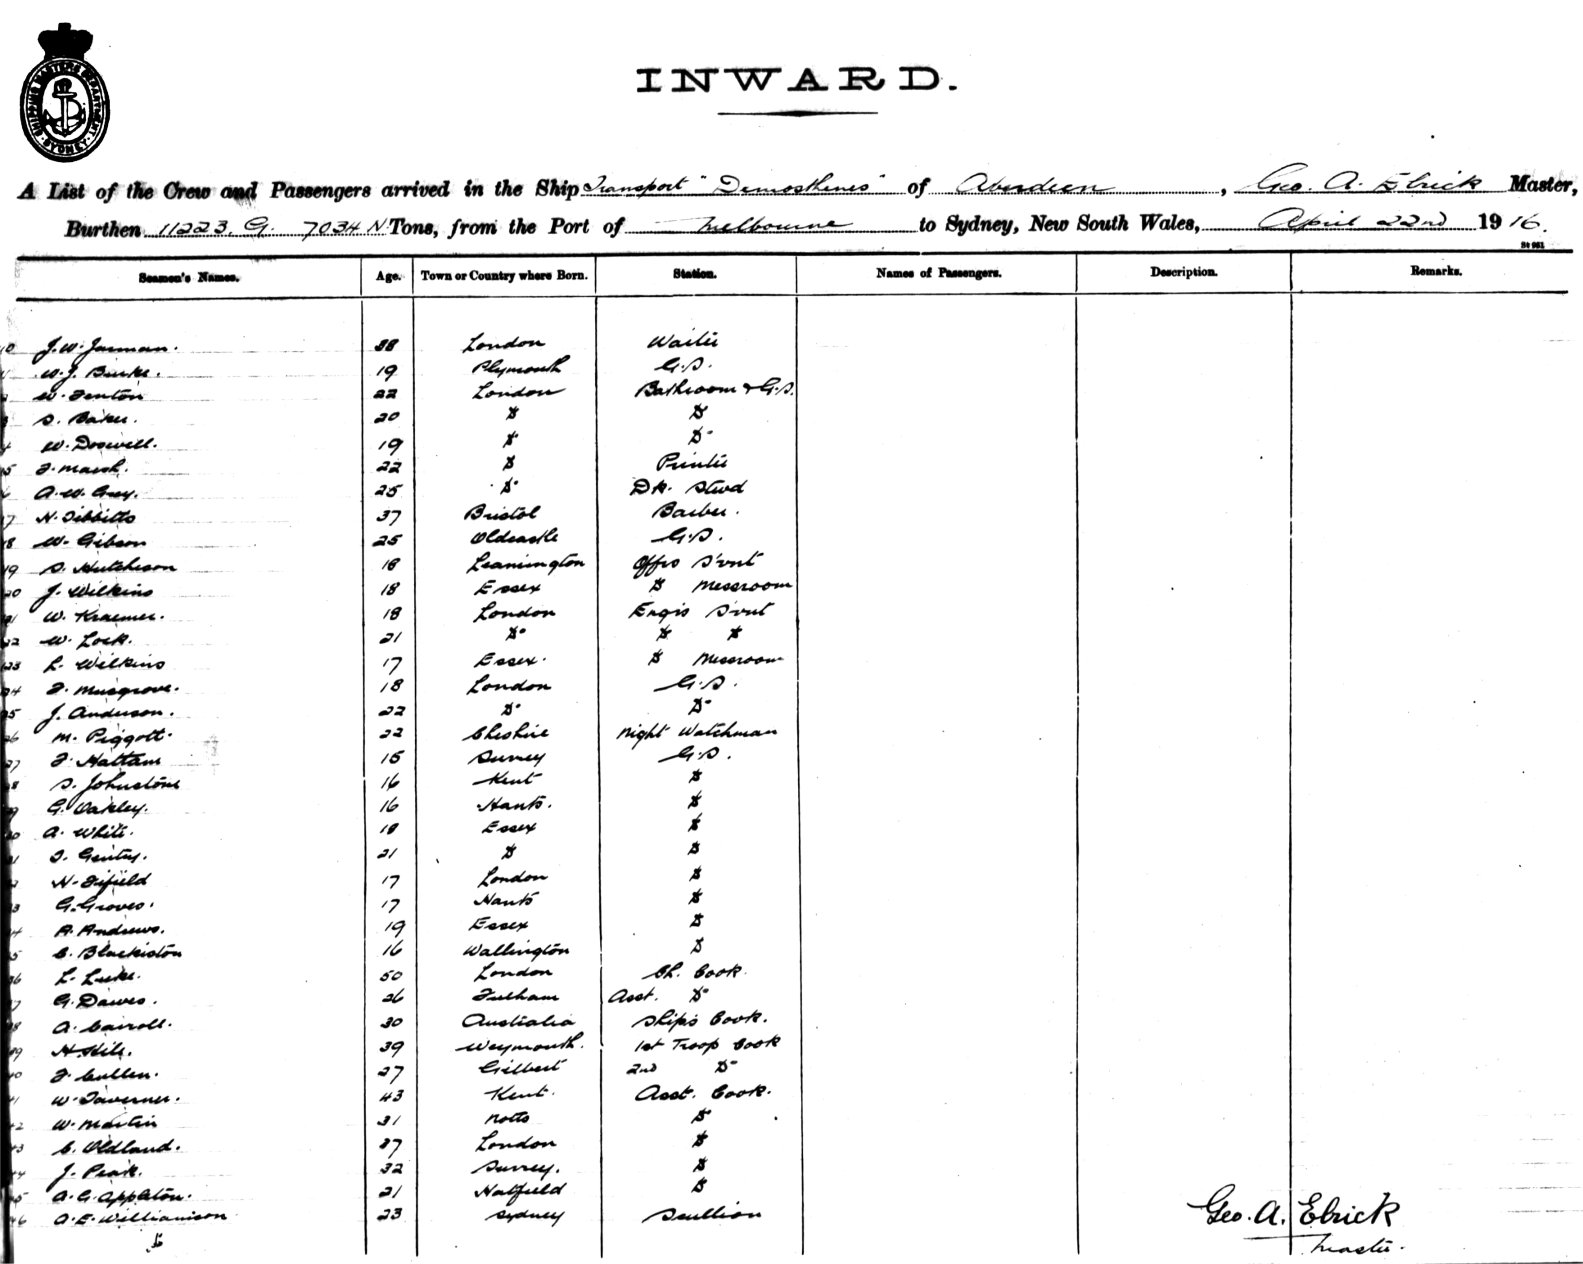 SHIPPING MASTERS DEPARTMENT SYDNEY
INWARD.
A List of the Crew and Passengers arrived in the Ship Transport "Demosthenes" of Aberdeen, Geo. A. Elrick Master,
Burthen 11223. G. 7034 N Tons, from the Port of Melbourne to Sydney, New South Wales, April 22nd 1916.
Seamen's Names. Age. Town or Country where Born. Station. Names of Passengers. Description. Remarks.
10 J. W. Jarman. 38 London Waiter
W. J. Burke. 19 Plymouth G.S.
W. Fenton 22 London Bathroom & G.S.
S. Baker. 20 Do Do
W. Doswell. 19 Do Do
15 F. Marsh. 22 Do Printer
A. W. Grey. 25 Do Dk. Stwd
17 H. Tibbitts 37 Bristol Barber.
18 W. Gibson 25 Oldcastle G.S.
19 S. Hutcheson 18 Leamington Offrs S'vnt
20 J. Wilkins 18 Essex Do Messroom
21 W. Kraemer. 18 London Engrs S'vnt
22 W. Lock. 21 Do Do Do
23 L. Wilkins 17 Essex. Do Messroom
24 F. Musgrove. 18 London G.S.
25 J. Anderson. 22 Do Do
26 M. Piggott. 22 Cheshire Night Watchman
27 F. Hattam 15 Surrey G.S.
28 S. Johnstone 16 Kent Do
29 G. Oakley. 16 Hants. Do
30 A. White. 18 Essex Do
31 T. Gentry. 21 Do Do
H. Fifield 17 London Do
33 G. Groves. 17 Hants Do
34 A. Andrews. 19 Essex Do
35 C. Blackiston 16 Wallington Do
36 L. Luke. 50 London Ch. Cook.
37 G. Dawes. 26 Fulham Asst. Do
38 A. Carroll. 30 Australia Ship's Cook.
39 H. Hill. 39 Weymouth. 1st Troop Cook
40 F. Cullen. 27 Gilbert 2nd Do
41 W. Taverner. 43 Kent. Asst. Cook.
42 W. Martin 31 Notts Do
43 C. Oldland. 37 London Do
44 J. Peak. 32 Surrey. Do
45 A. G. Appleton. 21 Hatfield Do
46 A. E. Williamson 23 Sydney Scullion
Geo. A. Elrick
Master.